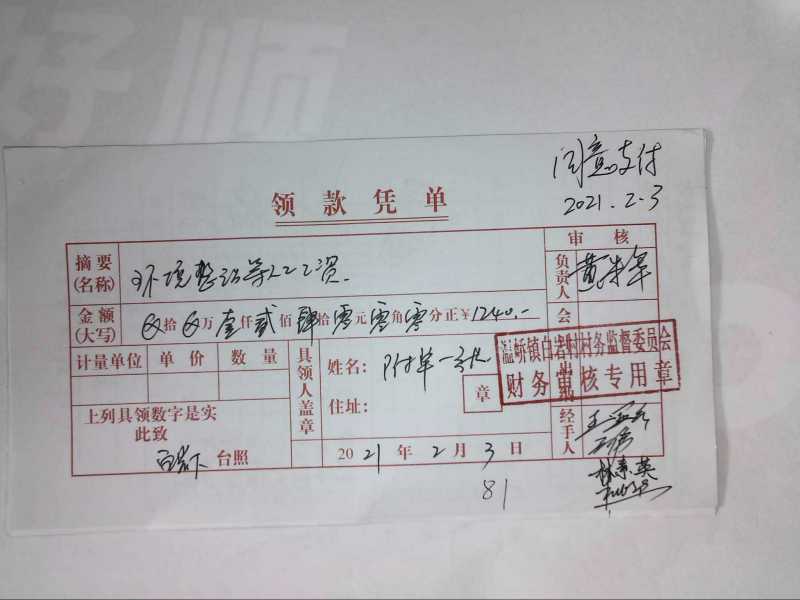 好顺
同意支付
2021.2.3
领款凭单
摘要(名称) 环境整治等人工工资. 审核
负责人
金额(大写) 拾 万壹仟贰佰肆拾零元零角零分正￥1240.- 会
计量单位 单价 数量 具领人盖章 姓名: 附单一份 章
住址:
镇白岩村村务监督委员会
财务审核专用章
上列具领数字是实
此致
白岩下 台照 2021年2月3日 经手人
林素英
81